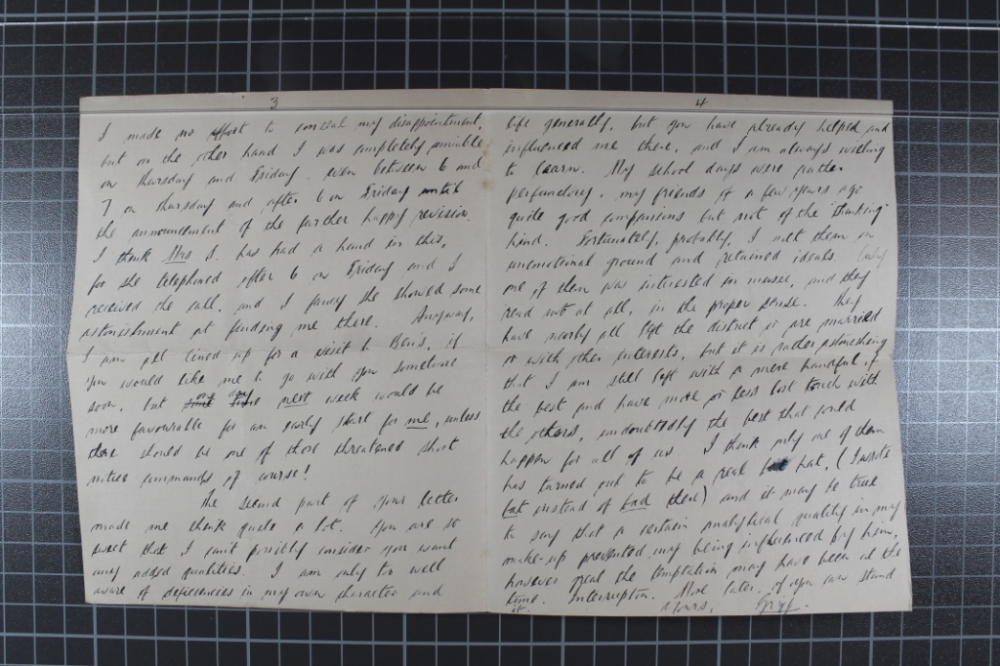 3
I made no effort to conceal my disappointment,
but on the other hand I was completely amiable
on Thursday and Friday. even between 6 and
7 on Thursday and after 6 on Friday until
the announcement of the further happy revision.
I think Mrs S. has had a hand in this,
for she telephoned after 6 on Friday and I
received the call, and I fancy she showed some
astonishment at finding me there. Anyway,
I am all lined up for a visit to Ben's, if
you would like me to go with you sometime
soon, but any day next week would be
more favourable for an early start for me, unless
there should be one of those threatened short
notice commands of course!
The second part of your letter
made me think quite a lot. You are so
sweet that I can't possibly consider you want
any added qualities. I am only too well
aware of deficiencies in my own character and
4
life generally, but you have already helped and
influenced me there, and I am always willing
to learn. My school days were rather
perfunctory, my friends of a few years ago
quite good companions but not of the "thinking"
kind. Fortunately, probably, I met them on
unemotional ground and retained ideals. Only
one of them was interested in music, and they
read not at all, in the proper sense. They
have nearly all left the district or are married
or with other interests, but it is rather astonishing
that I am still left with a mere handful of
the best and have more or less lost touch with
the others, undoubtedly the best that could
happen for all of us. I think only one of them
has turned out to be a real bad hat, (I wrote
bat instead of bad then) and it may be true
to say that a certain analytical quality in my
make-up prevented my being influenced by him,
however great the temptation may have been at the
time. Interruption. More later, if you can stand
it. Yours,